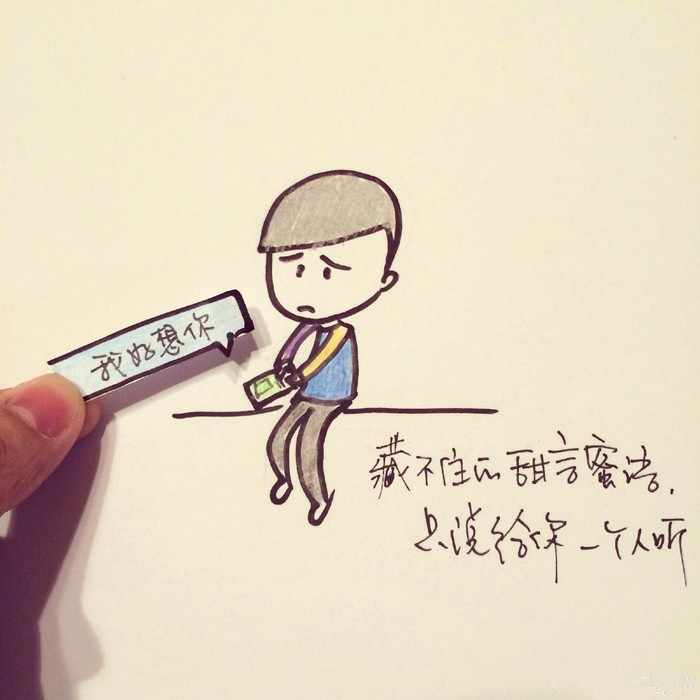 我好想你
藏不住的甜言蜜语.
只说给你一个人听